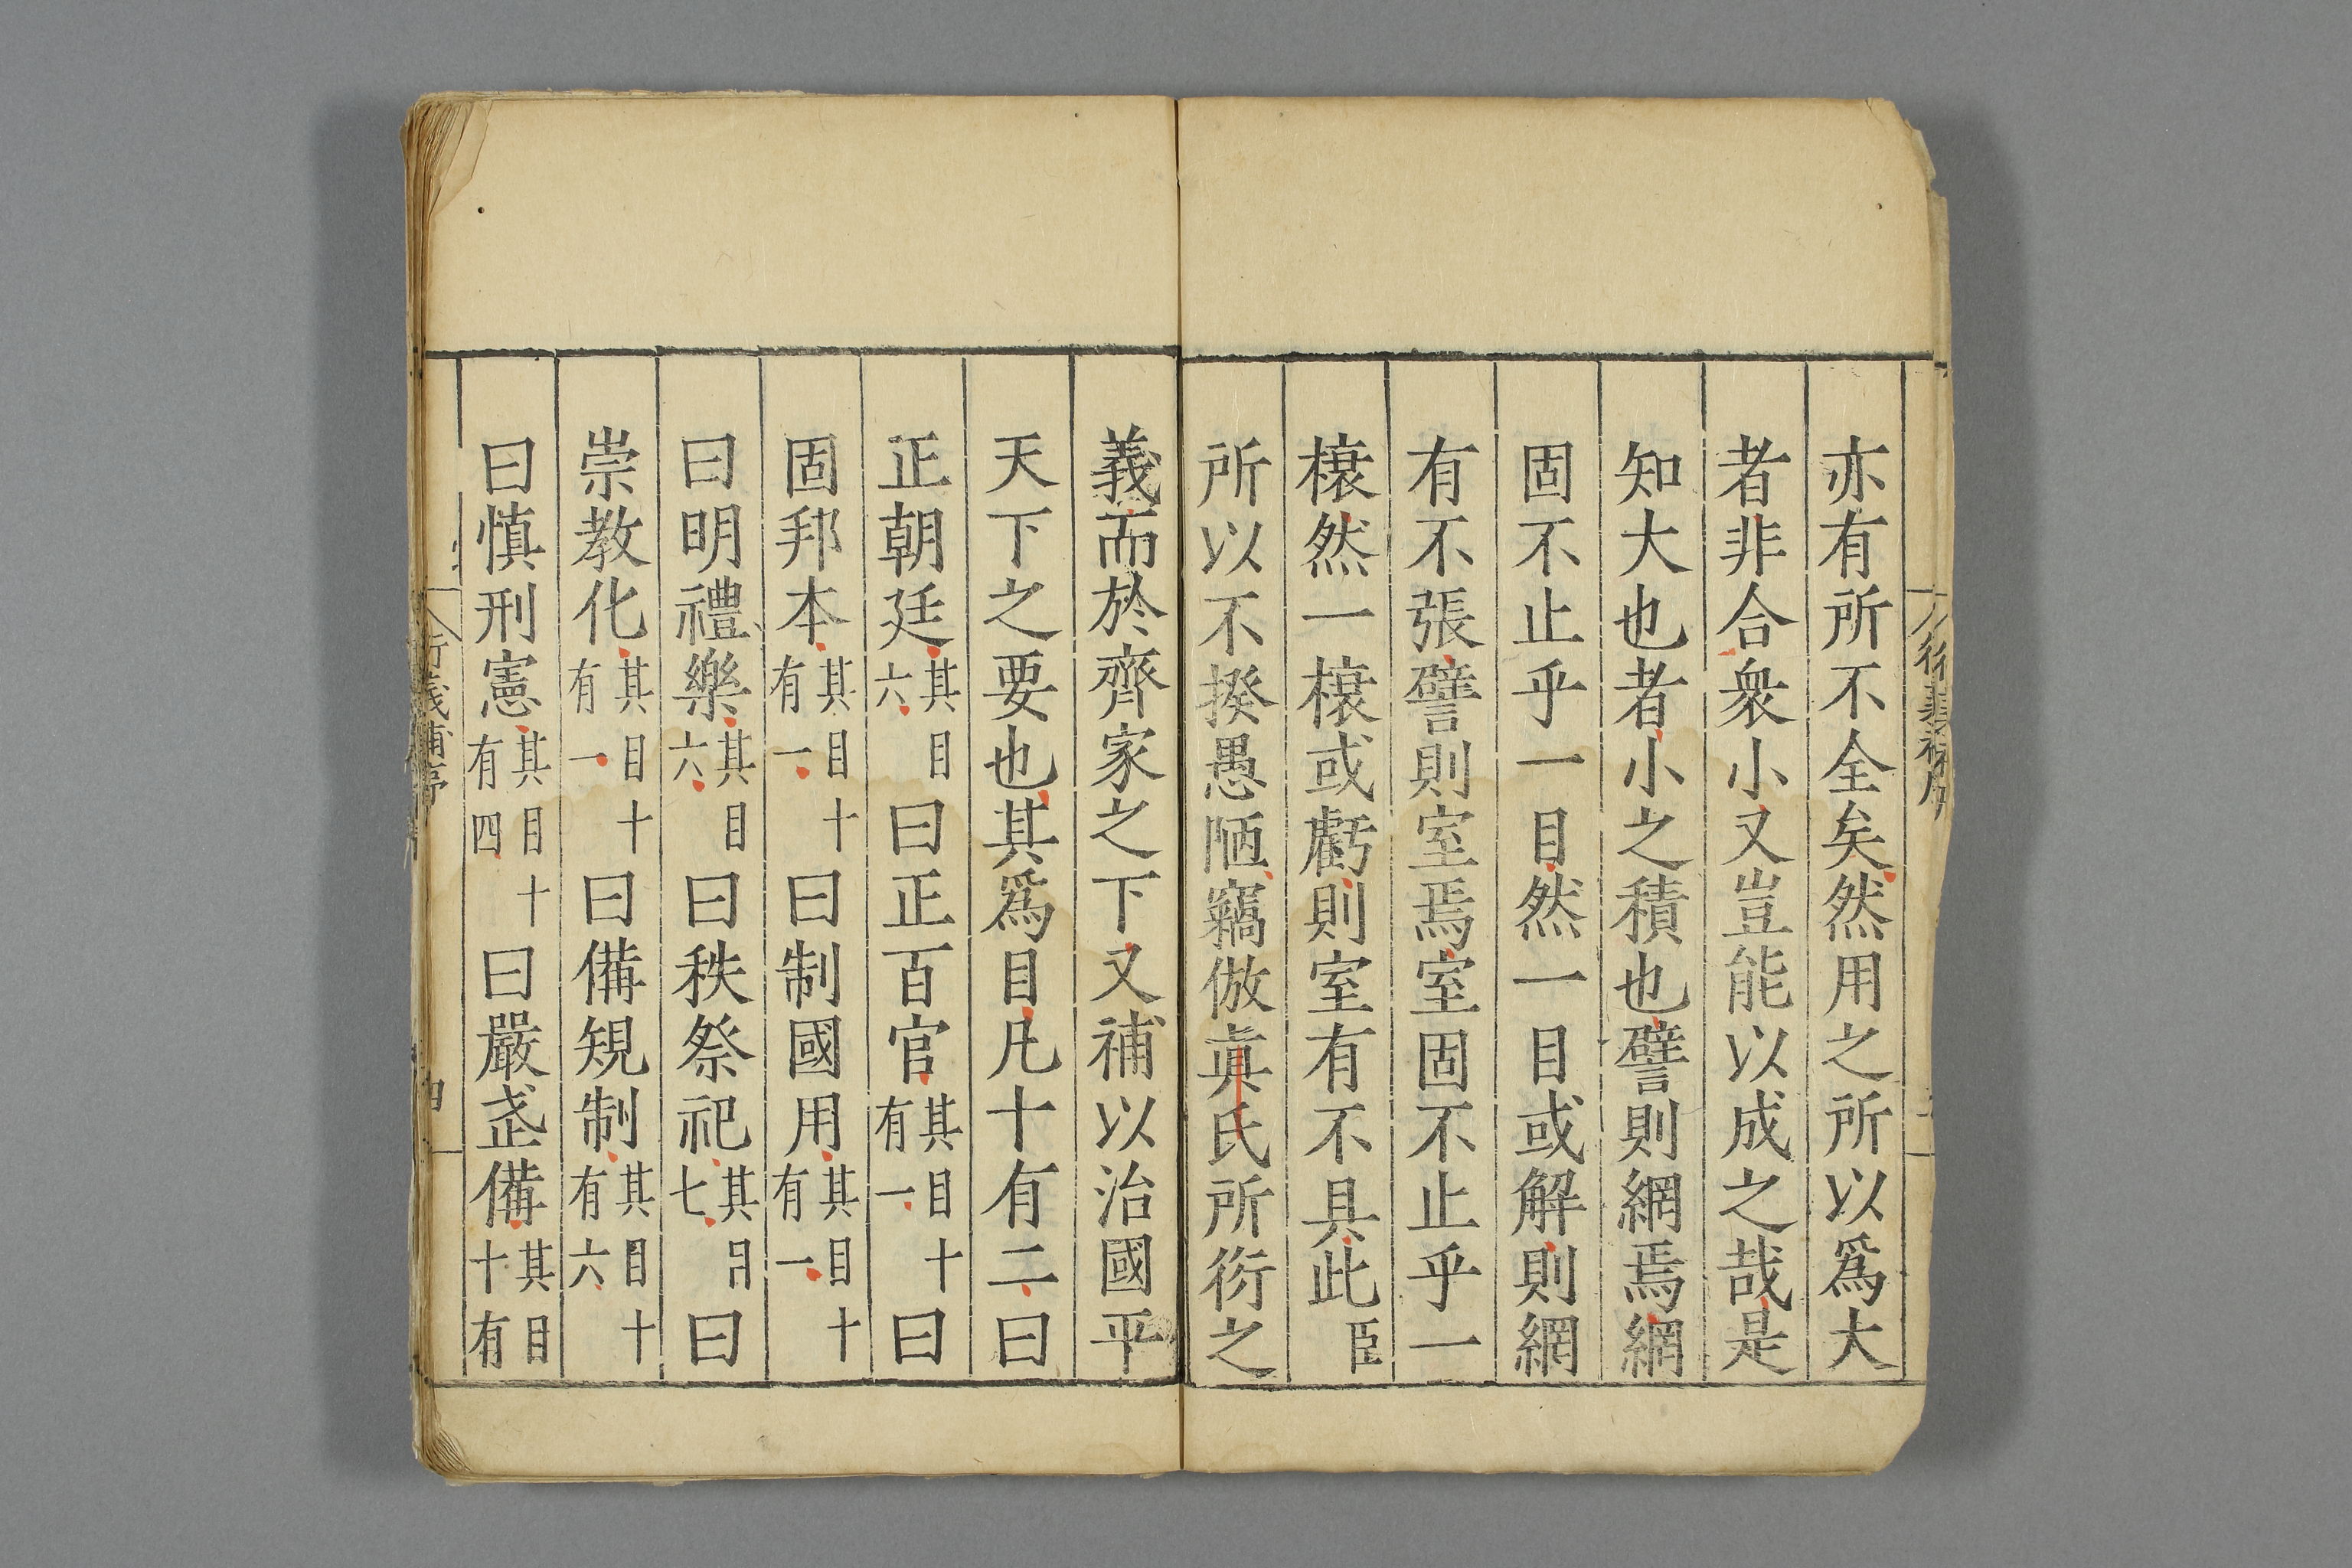 亦有所不全矣然用之所以爲大
者非合衆小又豈能以成之哉是
知大也者小之積也譬則網焉網
固不止乎一目然一目或解則網
有不張譬則室焉室固不止乎一
榱然一榱或虧則室有不具此臣
所以不揆愚陋竊倣眞氏所衍之
義而於齊家之下又補以治國平
天下之要也其爲目凡十有二曰
正朝廷其目六曰正百官其目十有一曰
固邦本其目十有一曰制國用其目十有一
曰明禮樂其目六曰秩祭祀其目七曰
崇教化其目十有一曰備規制其目十有六
曰慎刑憲其目十有四曰嚴武備其目十有
衍義補序